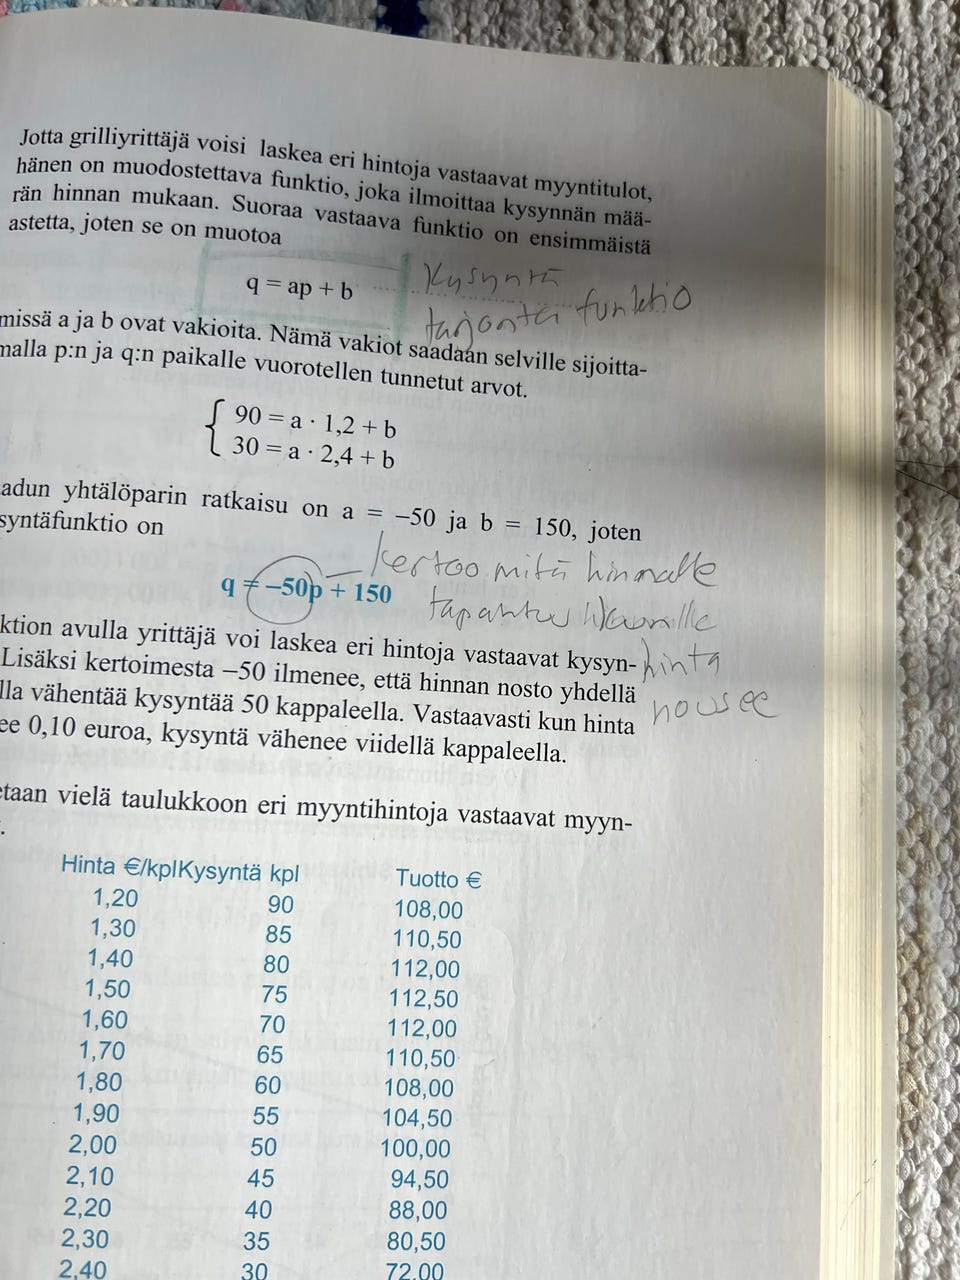 Jotta grilliyrittäjä voisi laskea eri hintoja vastaavat myyntitulot,
hänen on muodostettava funktio, joka ilmoittaa kysynnän mää-
rän hinnan mukaan. Suoraa vastaava funktio on ensimmäistä
astetta, joten se on muotoa
q = ap + b
Kysyntä
tarjonta funktio
missä a ja b ovat vakioita. Nämä vakiot saadaan selville sijoitta-
malla p:n ja q:n paikalle vuorotellen tunnetut arvot.
90 = a · 1,2 + b
30 = a · 2,4 + b
adun yhtälöparin ratkaisu on a = –50 ja b = 150, joten
syntäfunktio on
kertoo mitä hinnalle
q = –50p + 150
tapahtuu
ktion avulla yrittäjä voi laskea eri hintoja vastaavat kysyn-
hinta
Lisäksi kertoimesta –50 ilmenee, että hinnan nosto yhdellä
lla vähentää kysyntää 50 kappaleella. Vastaavasti kun hinta
nousee
ee 0,10 euroa, kysyntä vähenee viidellä kappaleella.
etaan vielä taulukkoon eri myyntihintoja vastaavat myyn-
.
Hinta €/kplKysyntä kpl Tuotto €
1,20 90 108,00
1,30 85 110,50
1,40 80 112,00
1,50 75 112,50
1,60 70 112,00
1,70 65 110,50
1,80 60 108,00
1,90 55 104,50
2,00 50 100,00
2,10 45 94,50
2,20 40 88,00
2,30 35 80,50
2,40 30 72,00